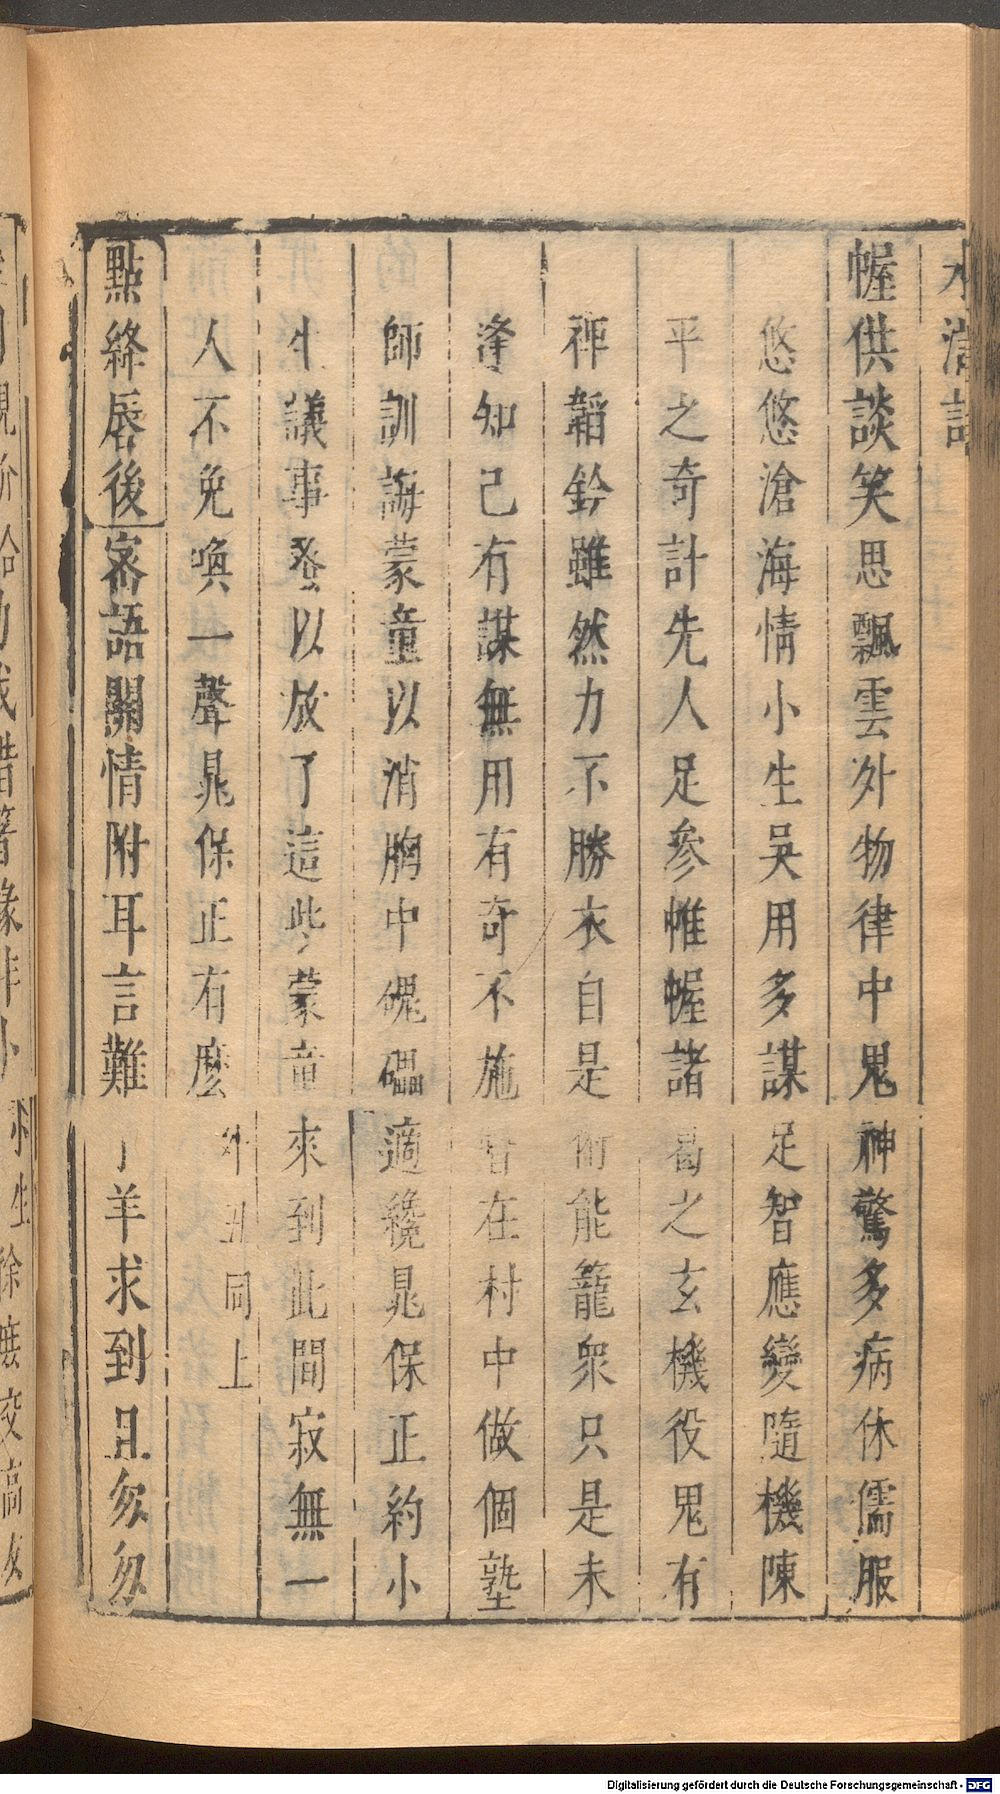 水滸記
幄供談笑思飄雲外物律中鬼神驚多病休儒服
悠悠滄海情小生吳用多謀足智應變隨機陳
平之奇計先人足參帷幄諸葛之玄機役鬼有
裨韜鈐雖然力不勝衣自是術能籠衆只是未
逢知己有謀無用有奇不施暫在村中做個塾
師訓誨蒙童以消胸中磈礧適纔晁保正約小
生議事發以放了這些蒙童來到此間寂無一
人不免喚一聲晁保正有麽 外丑同上
點絳唇後密語關情附耳言難 羊求到且匆匆
Digitalisierung gefördert durch die Deutsche Forschungsgemeinschaft - DFG